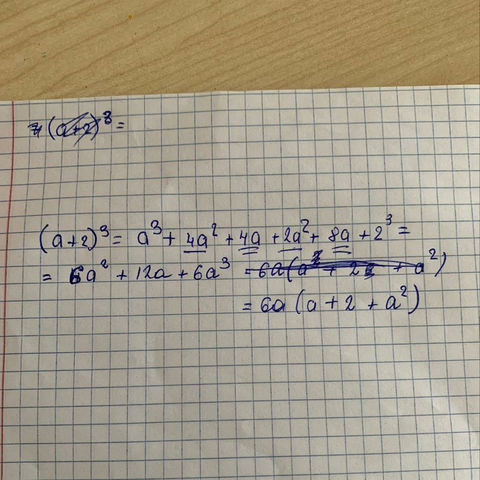 (a+2)³ =
(a+2)³ = a³ + 4a² + 4a + 2a² + 8a + 2³ =
= 6a² + 12a + 6a³ = 6a(a² + 2 + a²)
= 6a (a + 2 + a²)